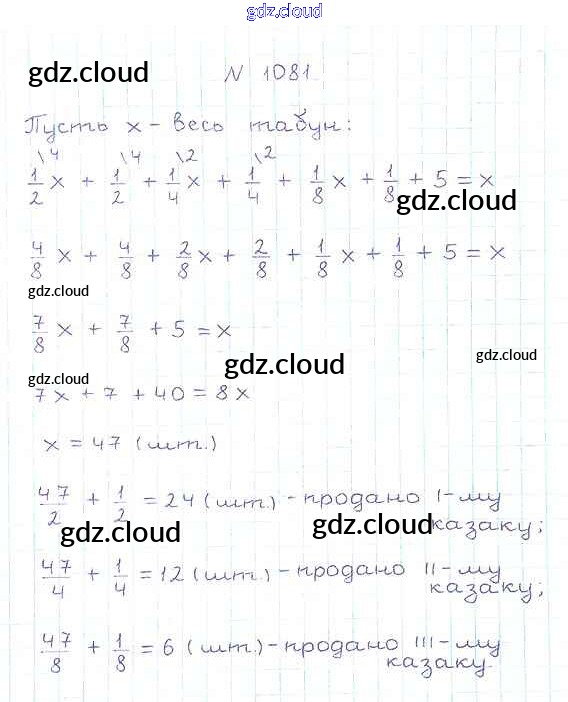 gdz.cloud
gdz.cloud
N 1081
Пусть x - весь табун:
\4 \4 \2 \2
1/2 x + 1/2 + 1/4 x + 1/4 + 1/8 x + 1/8 + 5 = x
gdz.cloud
4/8 x + 4/8 + 2/8 x + 2/8 + 1/8 x + 1/8 + 5 = x
gdz.cloud
7/8 x + 7/8 + 5 = x
gdz.cloud
gdz.cloud
gdz.cloud
7x + 7 + 40 = 8x
x = 47 (шт.)
47/2 + 1/2 = 24 (шт.) - продано I-му
казаку;
gdz.cloud
gdz.cloud
47/4 + 1/4 = 12 (шт.) - продано II-му
казаку;
47/8 + 1/8 = 6 (шт.) - продано III-му
казаку.